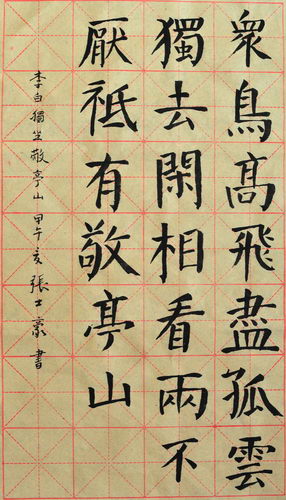 衆鳥髙飛盡孤雲
獨去閑相看兩不
厭祗有敬亭山
李白獨坐敬亭山 甲午亥 張士豪書